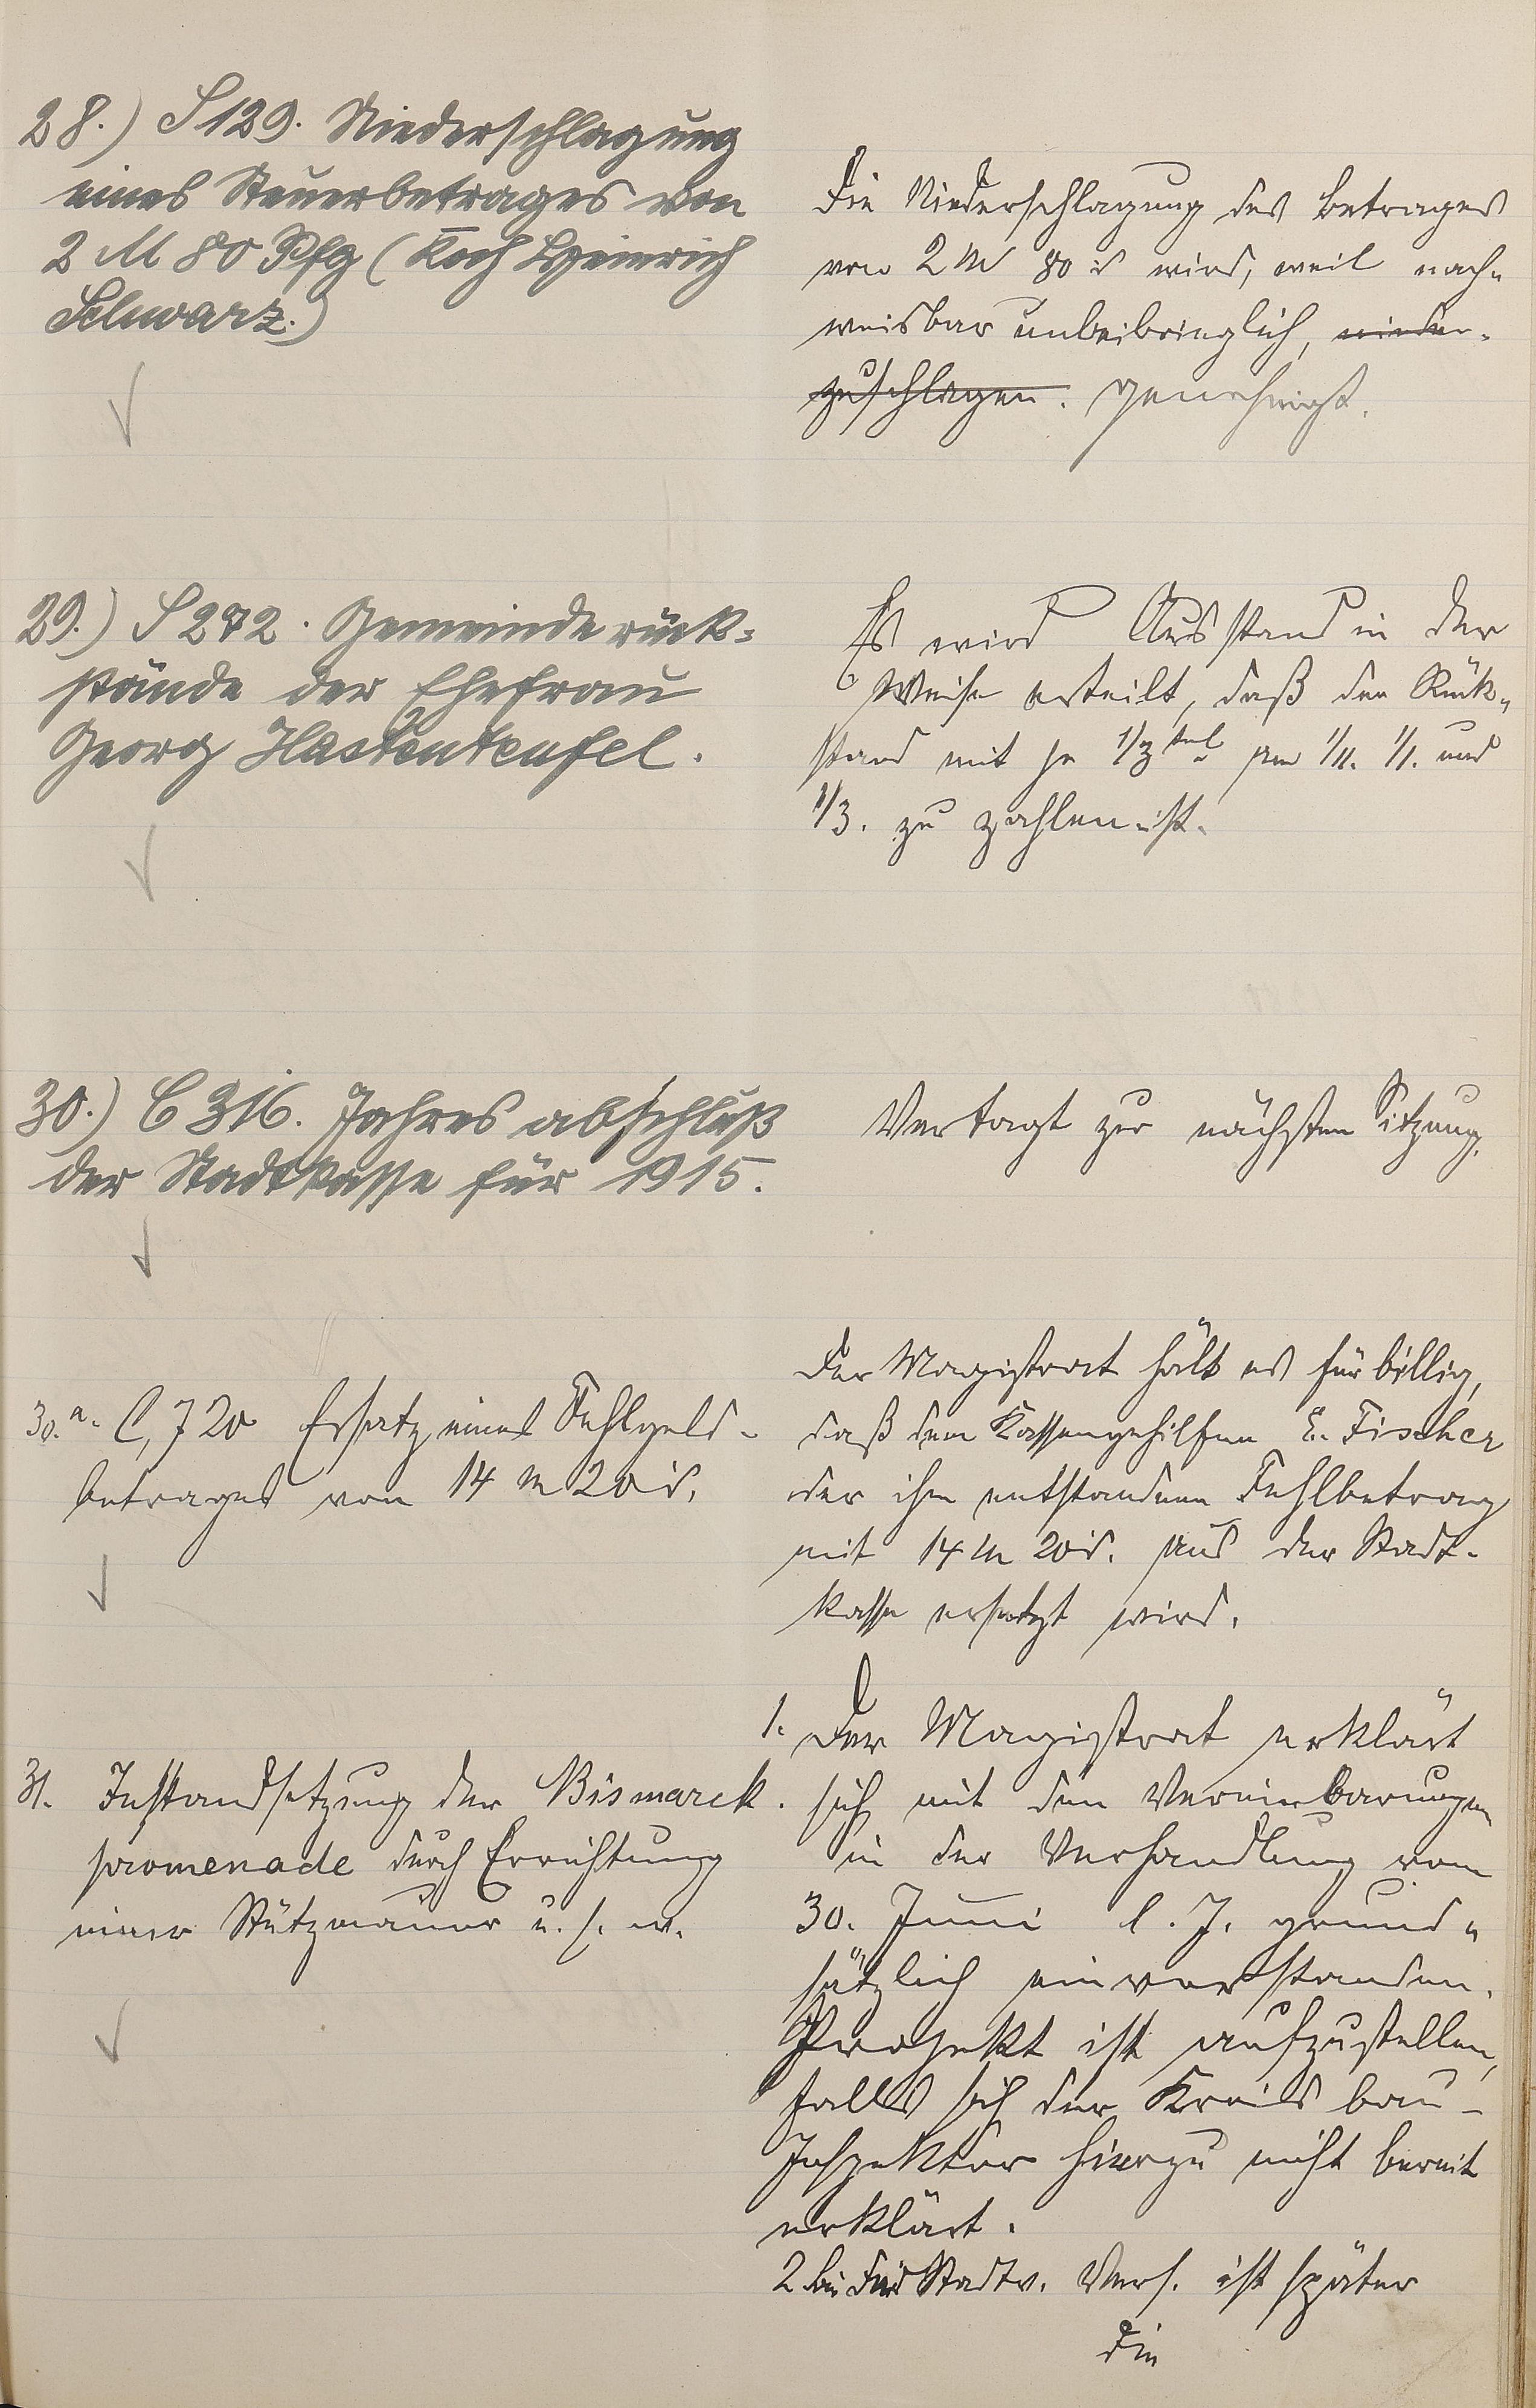 28.) S 129. Niederschlagung
eines Steuerbetrages von
2 M 80 Pfg (Koch Heinrich
Schwarz.)
Die Niederschlagung des Betrages
von 2 M 80 ₰ wird, weil nach-
weisbar unbeibringlich, nieder-
zuschlagen. genehmigt.
29.) S 272. Gemeinderück-
stände der Ehefrau
Georg Hastenteufel.
Es wird Ausstand in der
Weise erteilt, daß der Rück-
stand mit je 1/3 tel am 1/11. 1/1. und
1/3. zu zahlen ist.
30.) C 316. Jahresabschluß
der Stadtkasse für 1915.
Vertagt zur nächsten Sitzung.
30.a. C, 720 Ersatz eines Fehlgeld-
betrages von 14 M 20 ₰.
Der Magistrat hält es für billig,
daß dem Kassengehilfen E. Fischer
der ihm entstandene Fehlbetrag
mit 14 M 20 ₰. aus der Stadt-
kasse ersetzt wird.
31. Instandsetzung der Bismarck-
promenade durch Errichtung
einer Stützmauer u. s. w.
1. Der Magistrat erklärt
sich mit den Vereinbarungen
in der Verhandlung vom
30. Juni l. J. grund-
sätzlich einverstanden.
Projekt ist aufzustellen,
falls sich der Kreisbau-
Inspektor hierzu nicht bereit
erklärt.
2. Stadtv. Vers. ist später
die